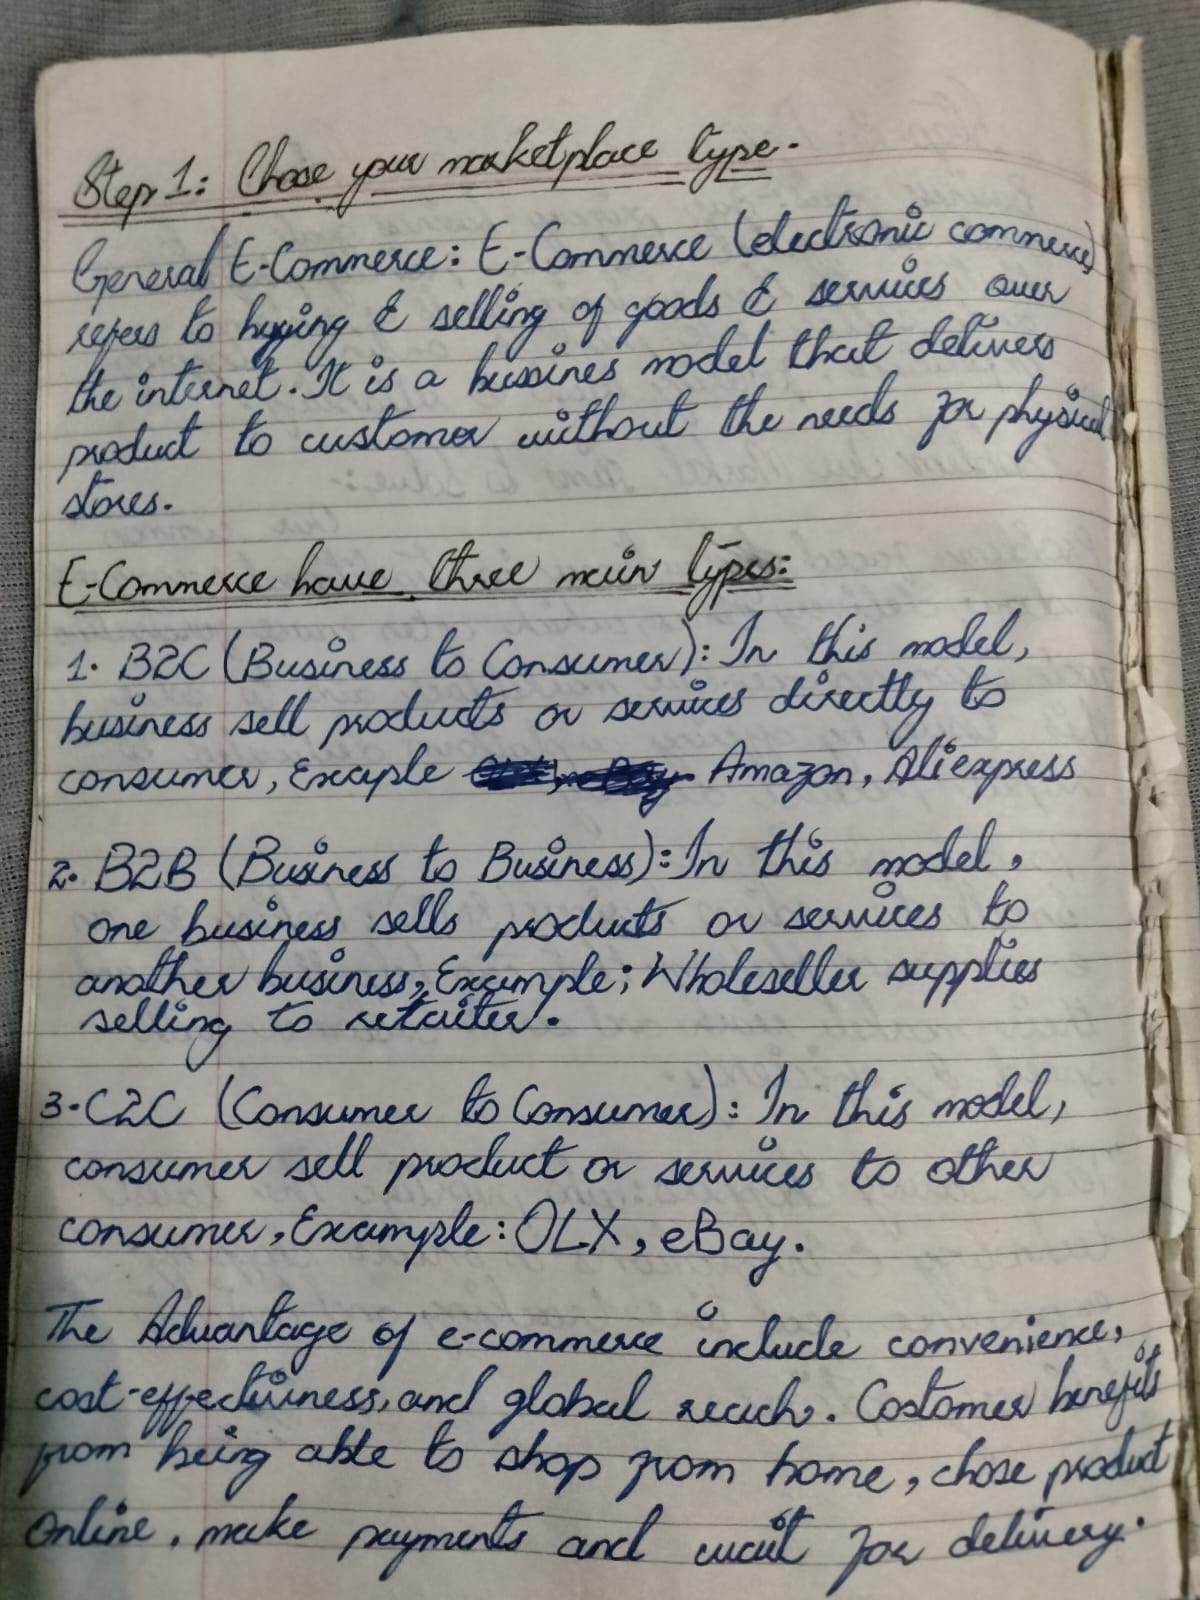 Step 1: Chose your marketplace type.
General E-Commerce: E-Commerce (electronic commerce)
refers to buying & selling of goods & services over
the internet. It is a bussines model that delivers
product to customer without the needs for physical
stores.
E-Commerce have three main types:
1. B2C (Business to Consumer): In this model,
business sell products or services directly to
consumer, Exaple Amazon, Aliexpress
2. B2B (Business to Business): In this model,
one business sells products or services to
another business, Example; Wholeseller supplies
selling to retailer.
3. C2C (Consumer to Consumer): In this model,
consumer sell product or services to other
consumer, Example: OLX, eBay.
The Advantage of e-commerce include convenience,
cost-effectiveness, and global reach. Costomer benefits
from being able to shop from home, chose product
online, make payments and wait for delivery.